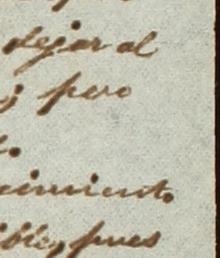 dejar al
; pero
cimiento.
ible, pues